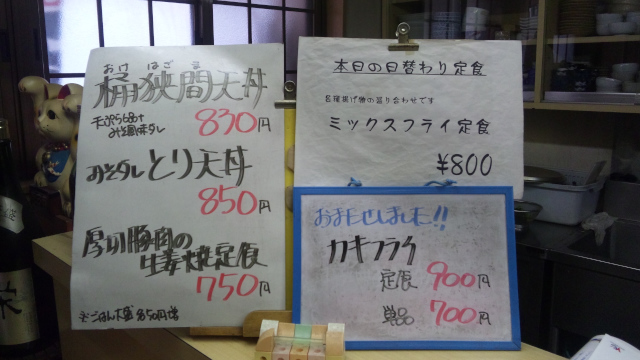 おけ はざ ま
桶狭間天丼
830円
みそダレ とり天丼
850円
厚切豚肉の
生姜焼定食
750円
本日の日替わり定食
名種揚げ物の盛り合わせです
ミックスフライ定食
¥800
おまたせしました!!
カキフライ
定食 900円
単品 700円